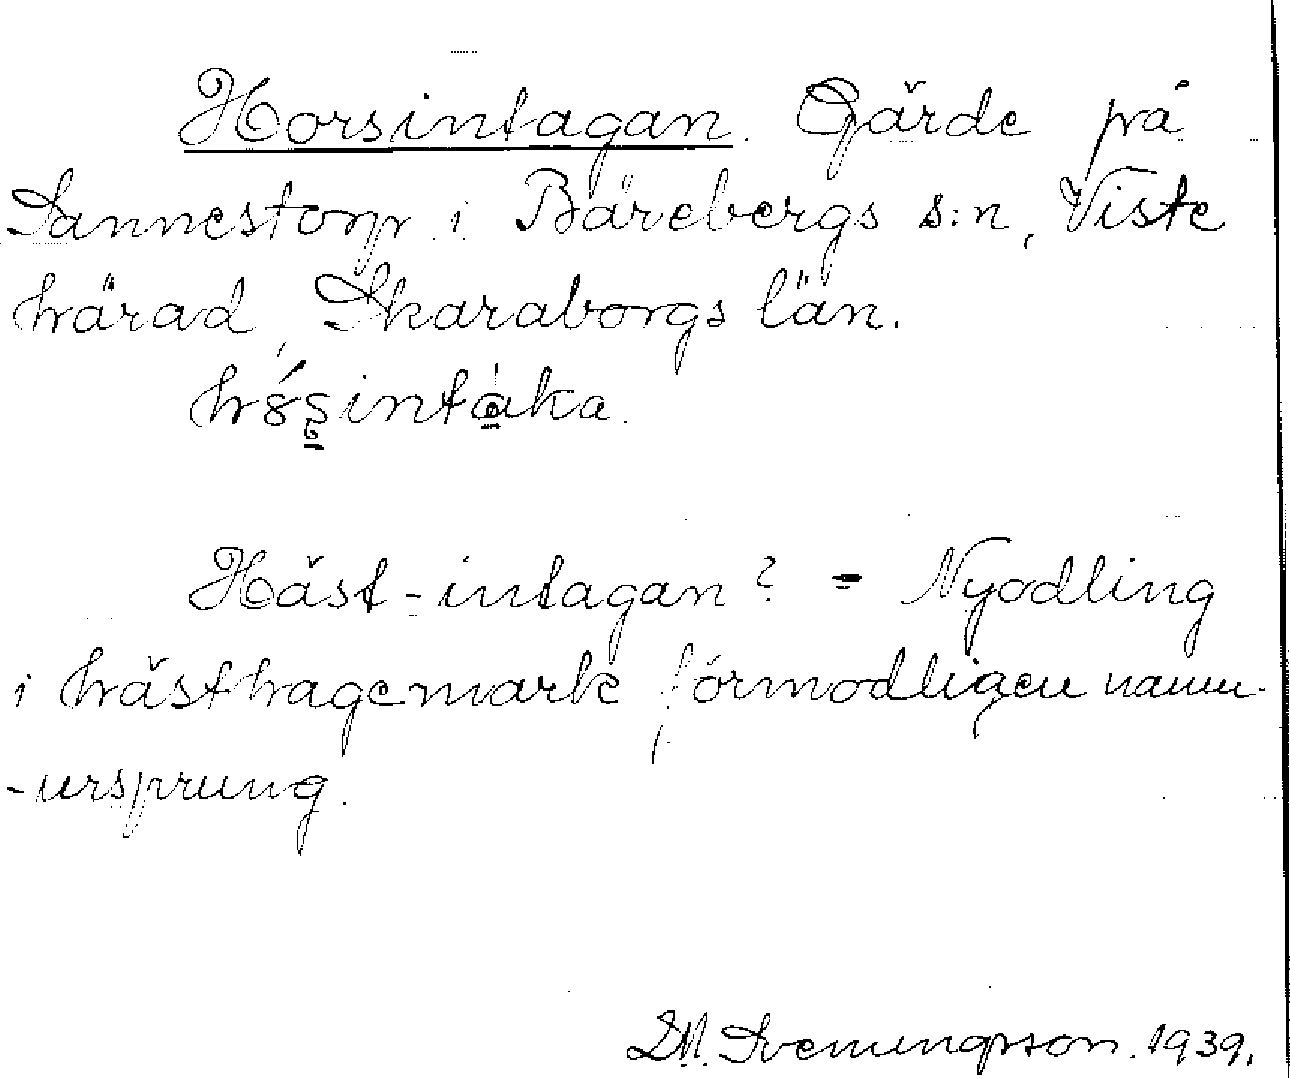 Horsintagan. Gärde på
Sannestorp i Bärebergs s:n, Viste
härad, Skaraborgs län.
Häst-intagan? = Nyodling
i hästhagemark förmodligen namn-
-ursprung.
Svenungsson. 1939.